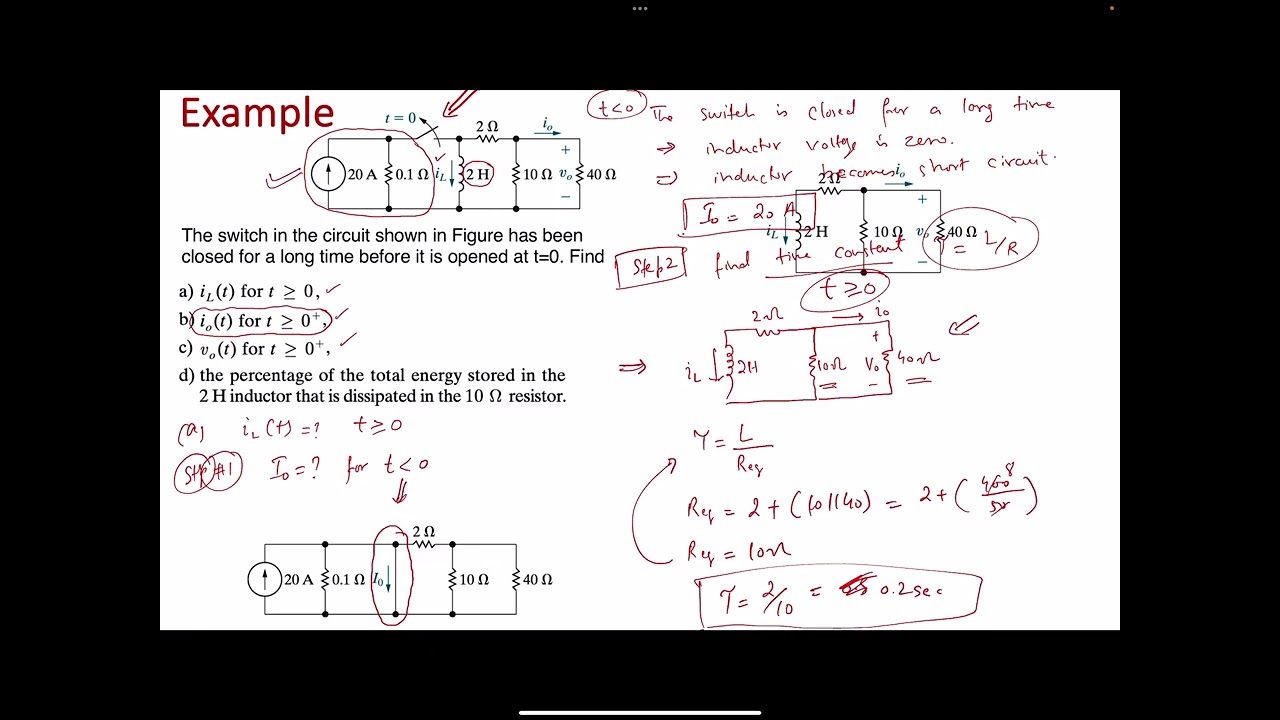 Example
t = 0
2 Ω
i_o
+
20 A
0.1 Ω
i_L
2 H
10 Ω
v_o
40 Ω
−
The switch in the circuit shown in Figure has been
closed for a long time before it is opened at t=0. Find
a) i_L(t) for t ≥ 0,
b) i_o(t) for t ≥ 0⁺,
c) v_o(t) for t ≥ 0⁺,
d) the percentage of the total energy stored in the
2 H inductor that is dissipated in the 10 Ω resistor.
(a) i_L(t) = ? t ≥ 0
Step #1 I_o = ? for t < 0
2 Ω
20 A
0.1 Ω
I_0
10 Ω
40 Ω
t<0 The switch is closed for a long time
⇒ inductor voltage is zero.
⇒ inductor becomes short circuit.
2 Ω
i_o
+
I_o = 20 A
i_L
2 H
10 Ω
v_o
40 Ω
−
Step 2 find time constant τ = L/R
t ≥ 0
2Ω
i_o
+
⇒ i_L
2H
10Ω
V_o
40Ω
−
τ = L / Req
Req = 2 + (10||40) = 2 + (400 8 / 50)
Req = 10Ω
τ = 2/10 = 0.2 sec